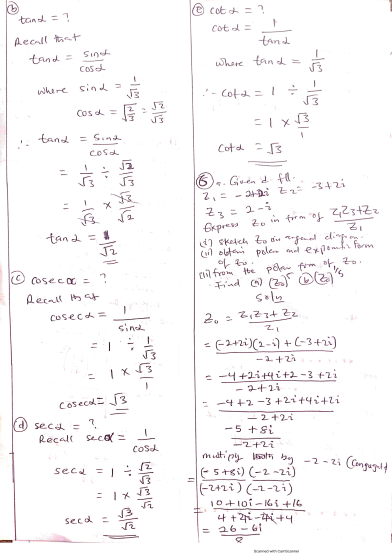 (b)
tanα = ?
Recall that
tanα = sinα/cosα
where sinα = 1/√3
cosα = √(2/3) = √2/√3
∴ tanα = sinα/cosα
= 1/√3 ÷ √2/√3
= 1/√3 × √3/√2
tanα = 1/√2
(c) cosecα = ?
Recall that
cosecα = 1/sinα
= 1 ÷ 1/√3
= 1 × √3/1
cosecα = √3
(d) secα = ?
Recall secα = 1/cosα
secα = 1 ÷ √2/√3
= 1 × √3/√2
secα = √3/√2
(e) cotα = ?
cotα = 1/tanα
where tanα = 1/√3
∴ cotα = 1 ÷ 1/√3
= 1 × √3/1
cotα = √3
(5) a. Given d fll.
Z₁ = -2+2i Z₂ = -3+2i
Z₃ = 2-i
Express Z₀ in form of Z₁Z₃+Z₂/Z₁
(i) sketch Z₀ on argand diagram
(ii) obtain polar and exponential form
of Z₀.
(iii) from the polar form of Z₀.
Find (a) (Z₀)⁵ (b) (Z₀)^1/5
Soln
Z₀ = Z₁Z₃ + Z₂/Z₁
= (-2+2i)(2-i) + (-3+2i)/-2+2i
= -4+2i+4i+2-3+2i/-2+2i
= -4+2-3+2i+4i+2i/-2+2i
-5+8i/-2+2i
multiply both by -2-2i (conjugate)
= (-5+8i)(-2-2i)/(-2+2i)(-2-2i)
= 10+10i-16i+16/4+4i-4i+4
= 26-6i/8
Scanned with CamScanner